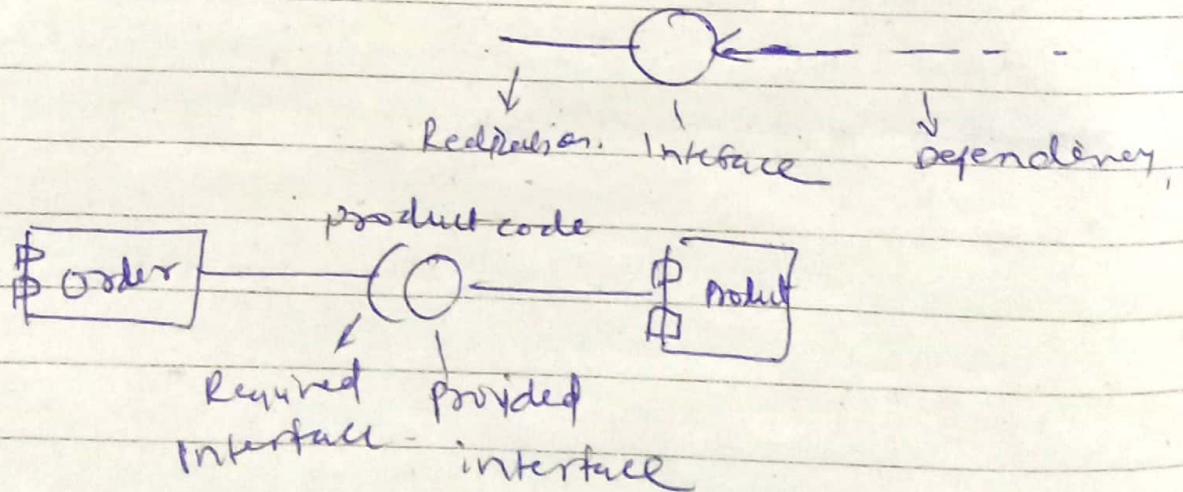 Realization. Inteface Dependency,
product code
Order Product
Required provided
Interface interface